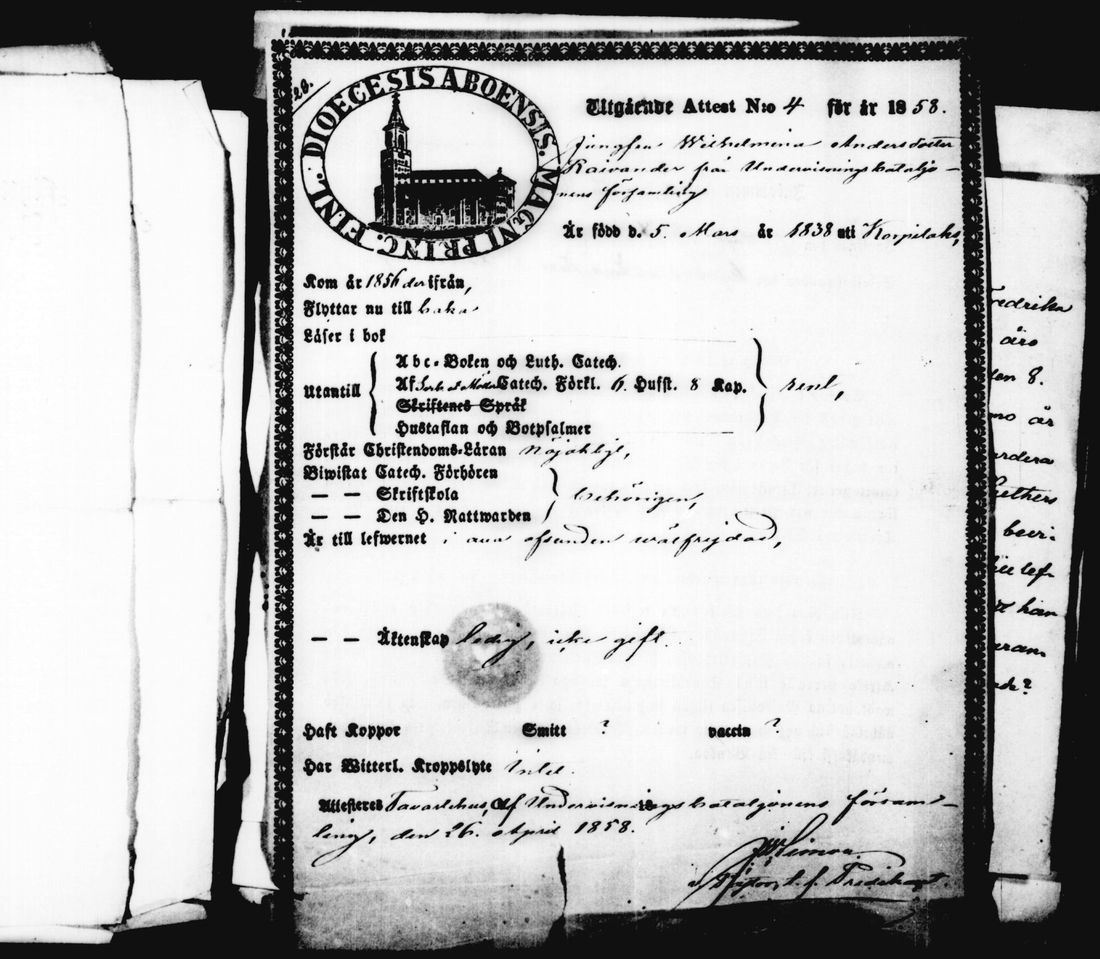 28.
DIOECESIS ABOENSIS. MAGNI PRINC. FINL.
Utgående Attest N:o 4 för år 1858.
Jungfru Wilhelmina Andersdotter
Raivander från Undervisningsbataljo-
nens församling
Är född d. 5. Mars år 1838 uti Korpilaks,
Kom år 1856 derifrån,
Flyttar nu till baka
Läser i bok
Utantill
Abc-Boken och Luth. Catech.
Af Catech. Förkl. 6. Hufst. 8 Kap.
Skriftenes Språk
Hustaflan och Botpsalmer
rent,
Förstår Christendoms-Läran nöjaktigt,
Biwistat Catech. Förhören
— — Skriftskola
— — Den H. Nattwarden
behörigen
Är till lefwernet i wälfrejdad,
— — Äktenskap ledig, icke gift.
Haft Koppor Smitt ? vaccin ?
Har Witterl. Kroppslyte Intet.
Attesteres Tavastehus, Af Undervisningsbataljonens försam-
ling, den 26. April 1858.
fredrika
års
den 8.
år
Luthers